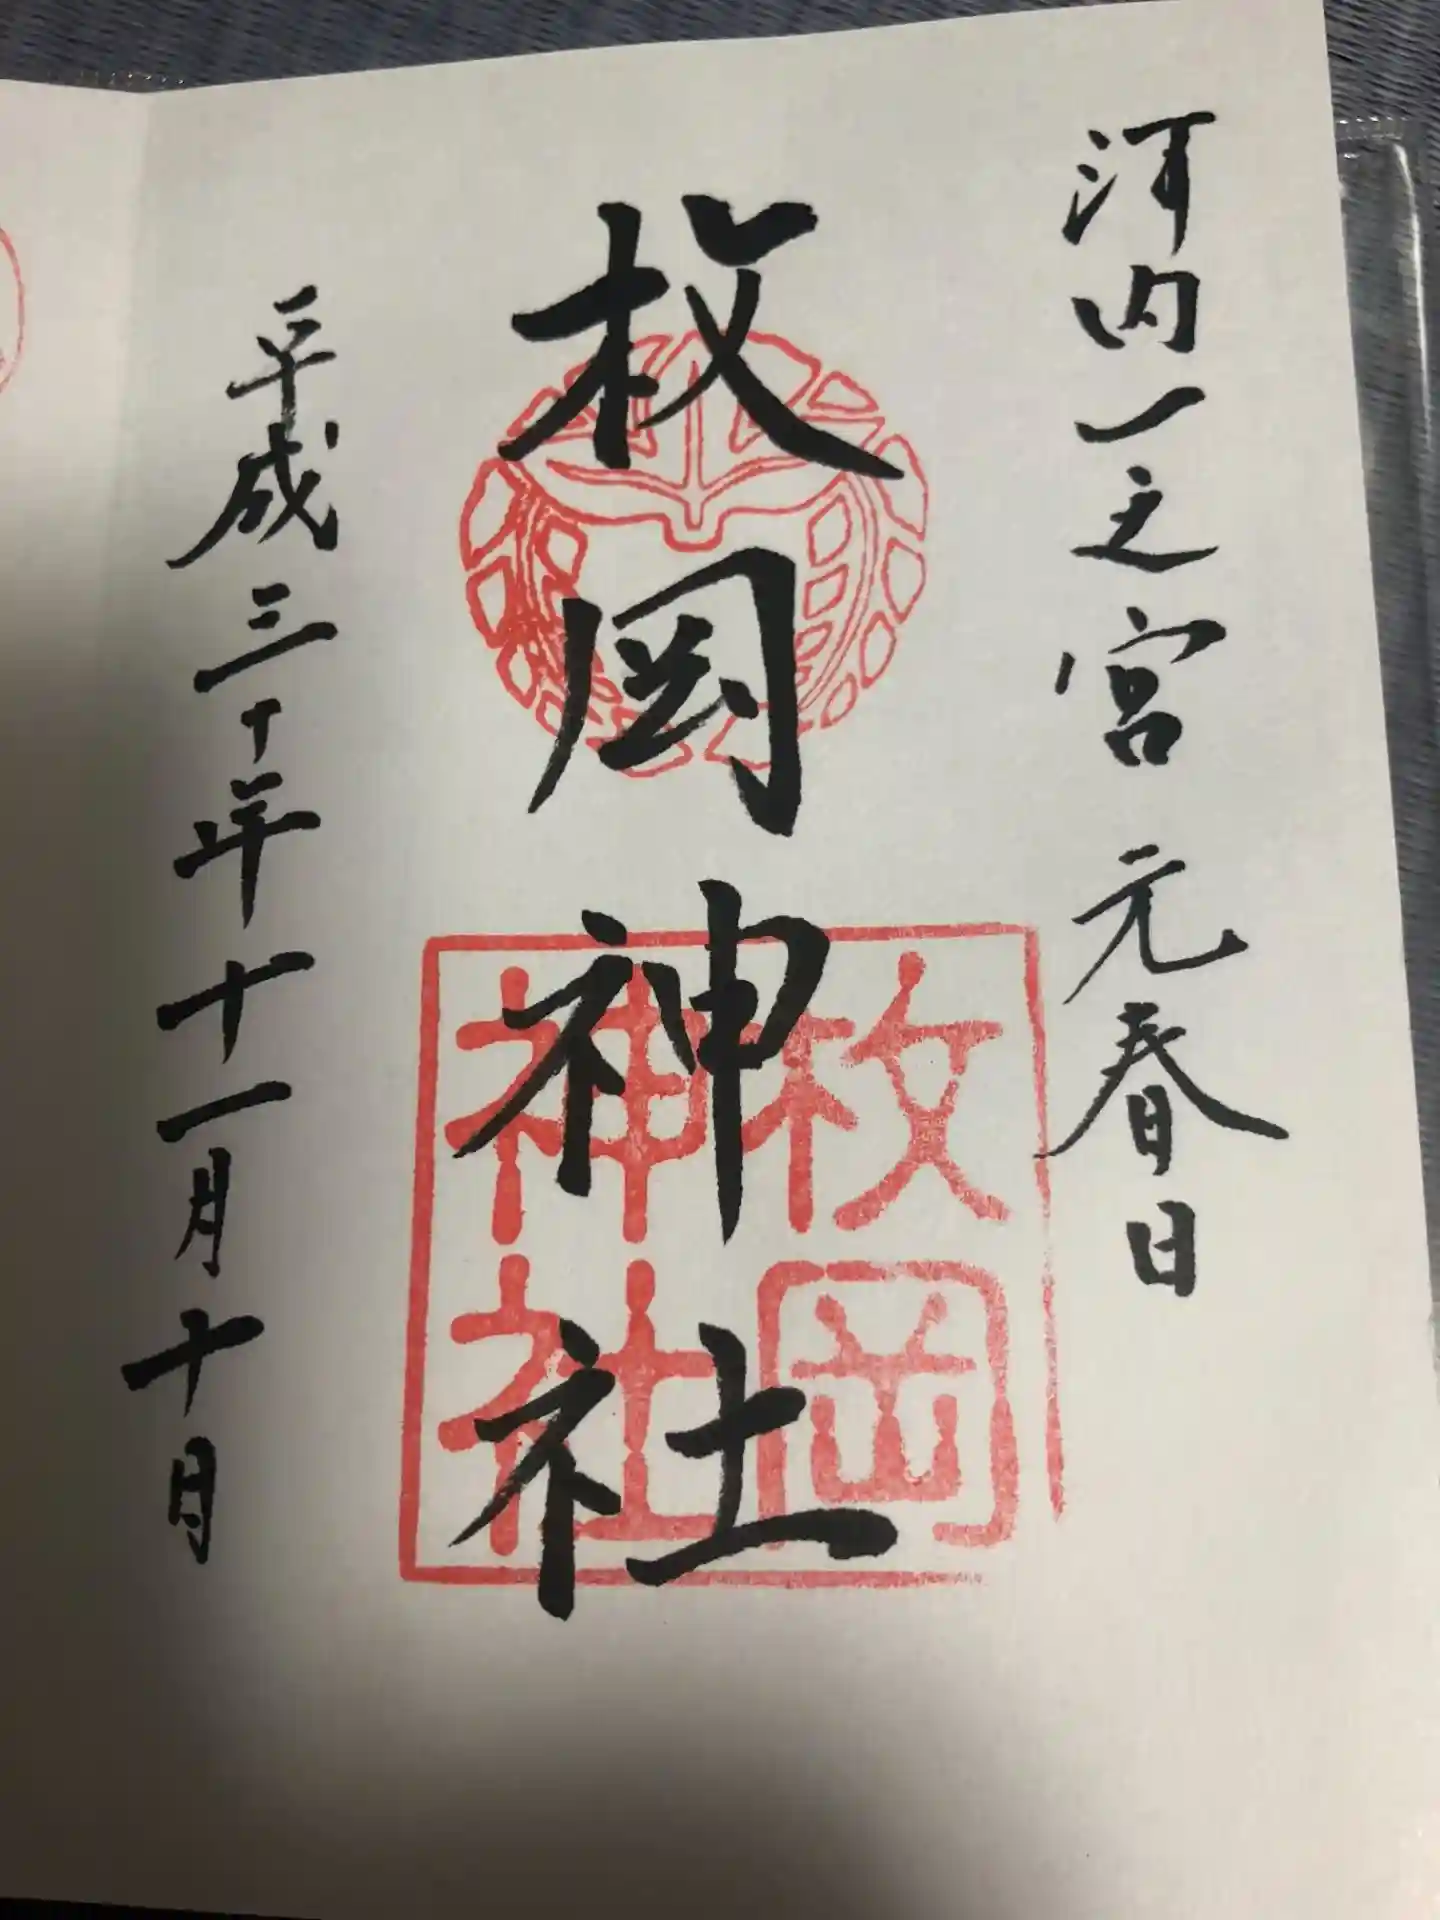 河内一之宮 元春日
枚岡神社
枚岡
神社
平成三十年十一月十日